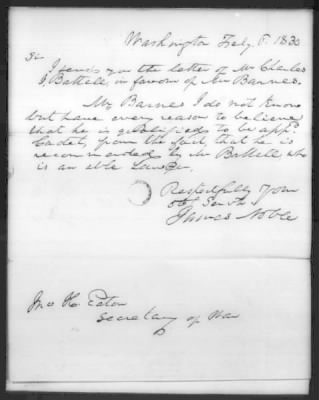 Washington Feby 5. 1830
Sir
I send you the letter of Mr Charles
I. Battell, in favour of Mr Barnes.
Mr Barnes I do not know
but have every reason to believe
that he is qualified to be appd.
Cadet, from the fact, that he is
recommended by Mr Battell who
is an able Lawyer.
Respectfully your
obt Servt
James Noble
Jno H. Eaton
Secretary of War